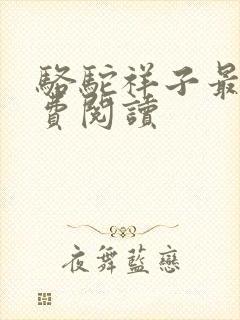 駱駝祥子最
費閱讀
夜舞藍戀